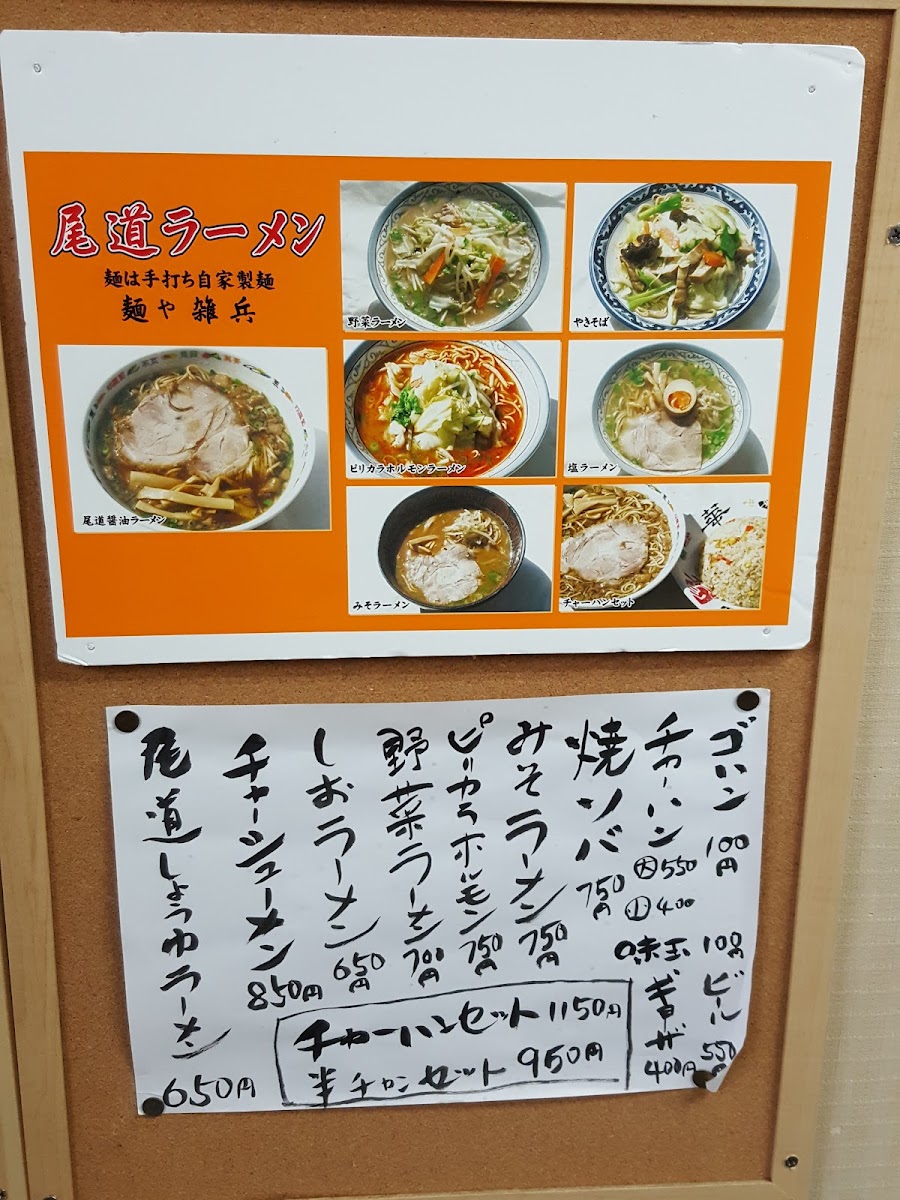 尾道ラーメン
麺は手打ち自家製麺
麺や 雑兵
尾道醤油ラーメン
野菜ラーメン
やきそば
ピリカラホルモンラーメン
塩ラーメン
みそラーメン
チャーハンセット
ゴハン 100円
チャーハン ㊅550
㊉400
味玉 100円
ビール 550円
ギョーザ 400円
焼ソバ 750円
みそラーメン 750円
ピリカラホルモン 750円
野菜ラーメン 700円
しおラーメン 650円
チャーシューメン 850円
尾道しょうゆラーメン 650円
チャーハンセット 1150円
半チャンセット 950円